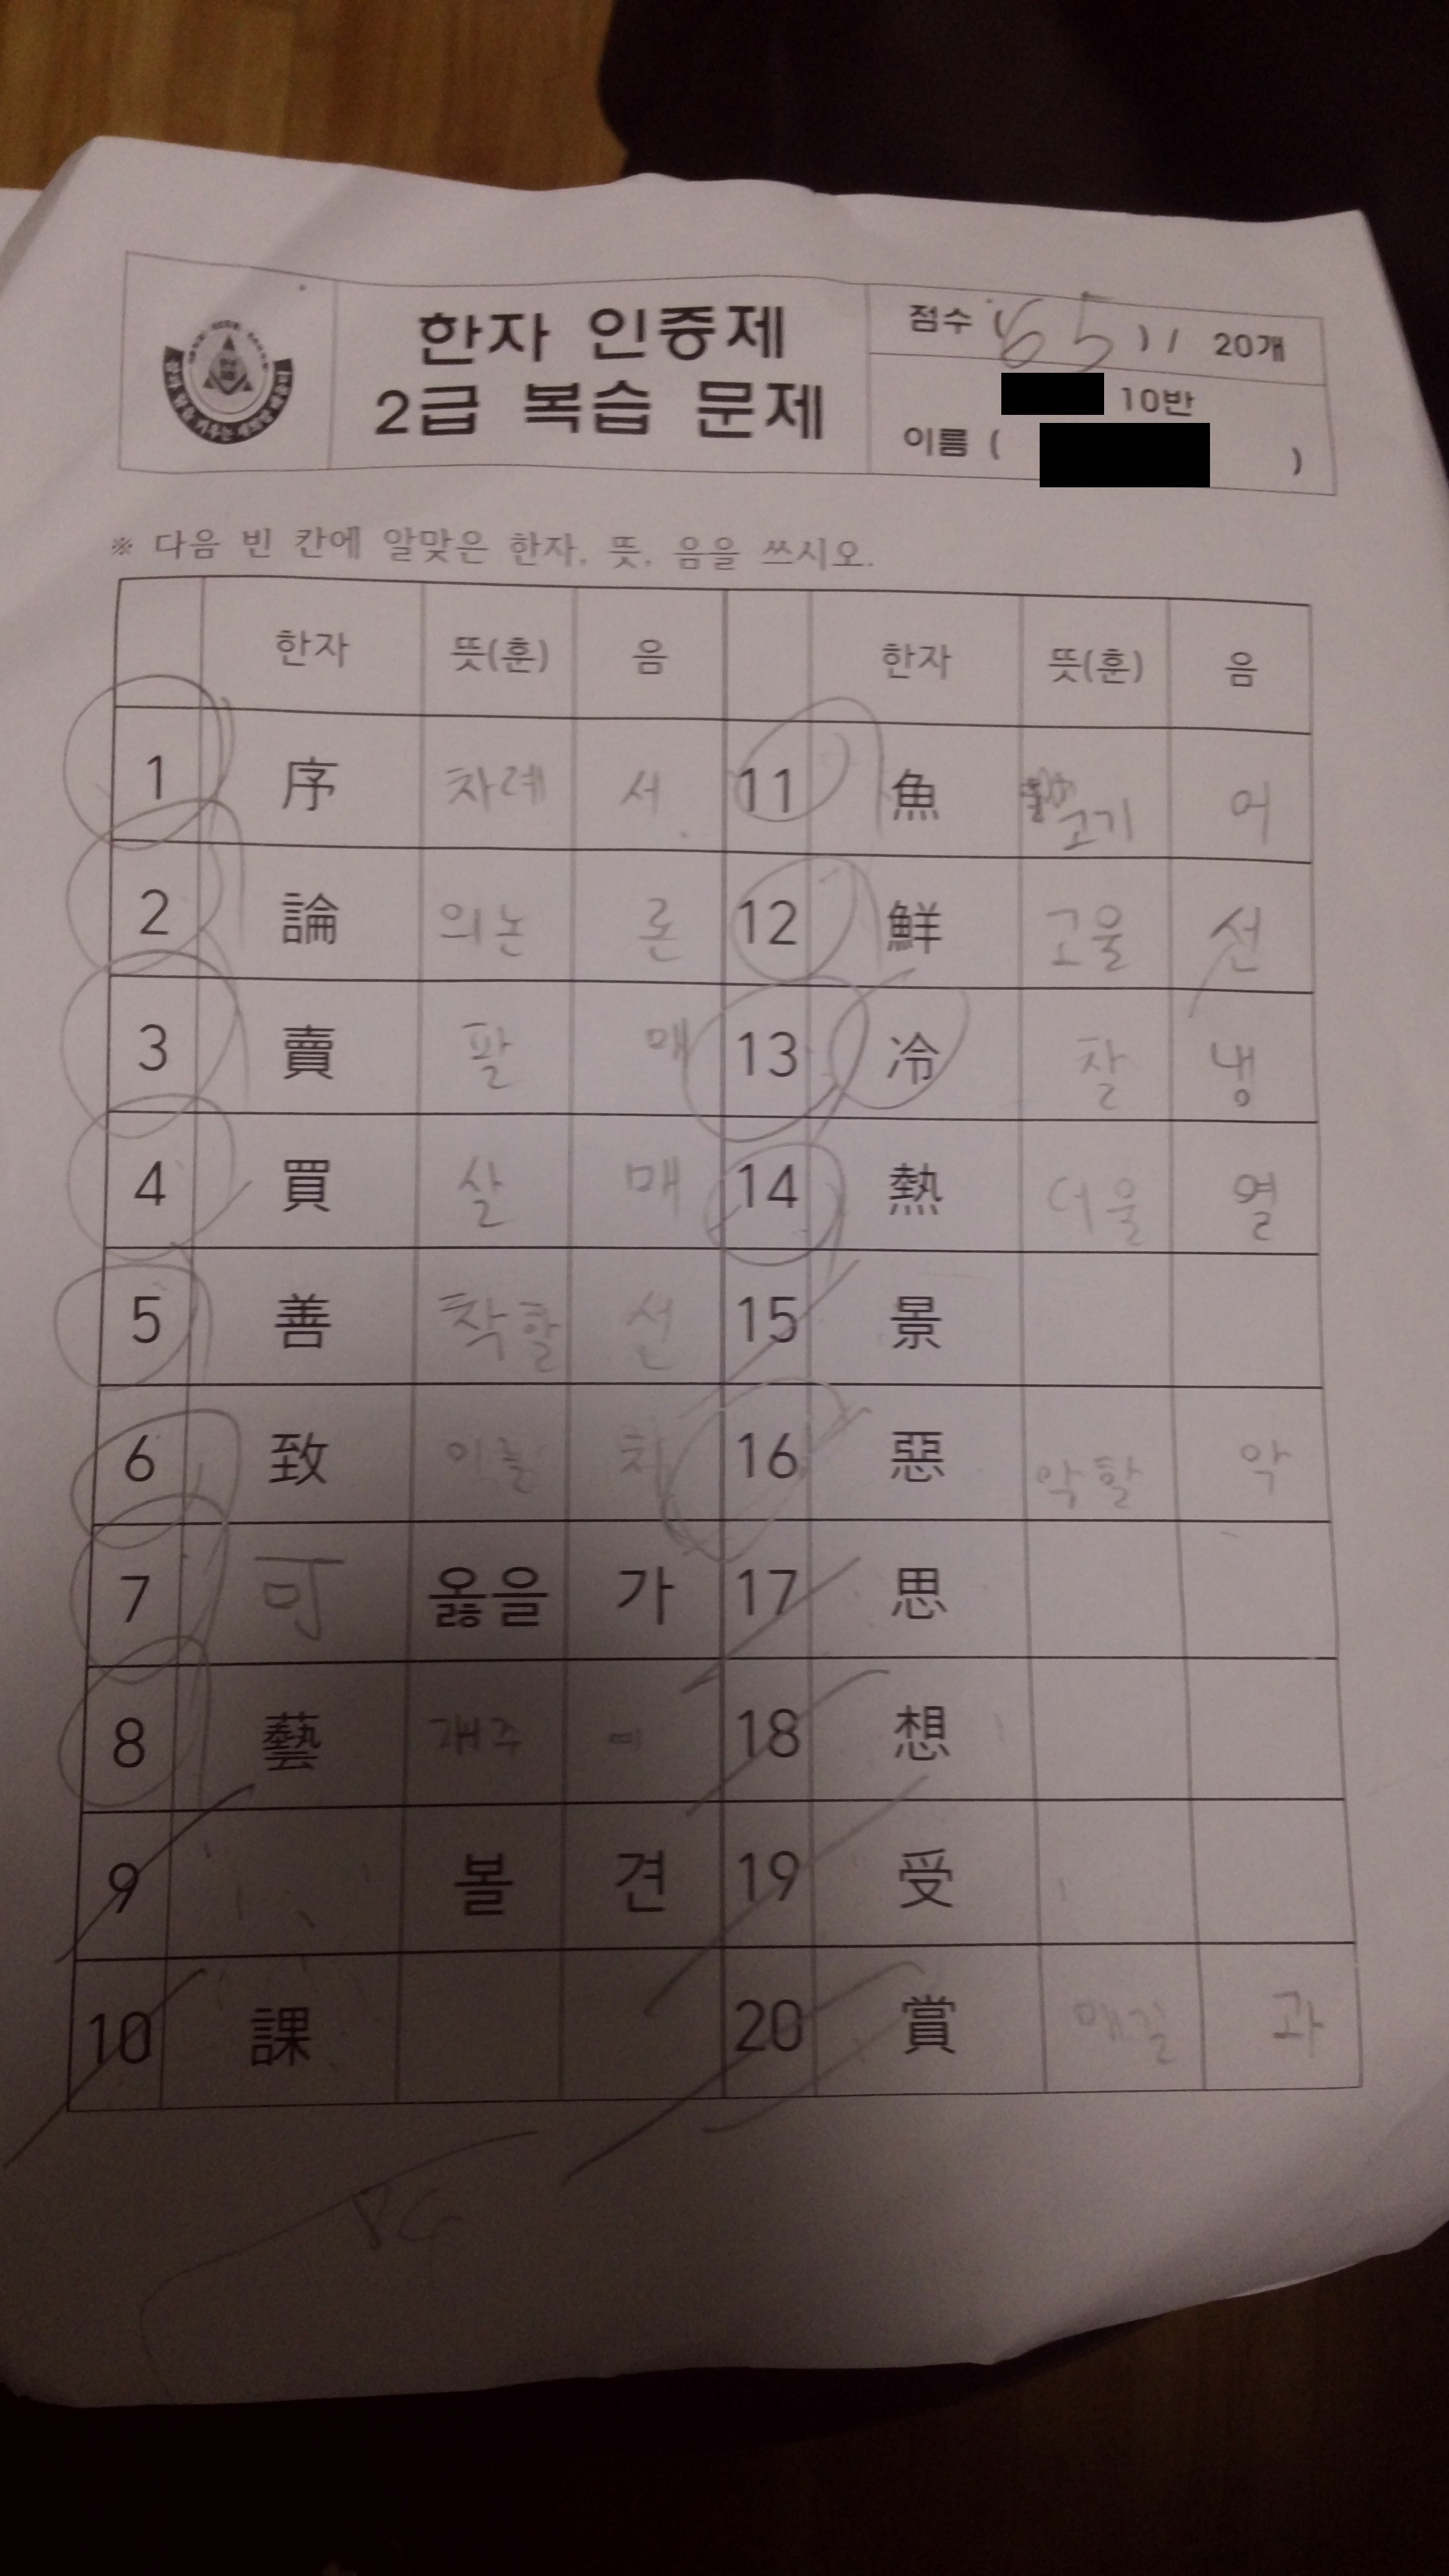 한자 인증제
2급 복습 문제
점수 ( 65 ) / 20개
10반
이름 ( )
※ 다음 빈 칸에 알맞은 한자, 뜻, 음을 쓰시오.
한자 뜻(훈) 음 한자 뜻(훈) 음
1 序 차례 서 11 魚 고기 어
2 論 의논 론 12 鮮 고울 선
3 賣 팔 매 13 冷 찰 냉
4 買 살 매 14 熱 더울 열
5 善 착할 선 15 景
6 致 치 16 惡 악할 악
7 可 옳을 가 17 思
8 藝 재주 18 想
9 볼 견 19 受
10 課 20 賞 매길 과